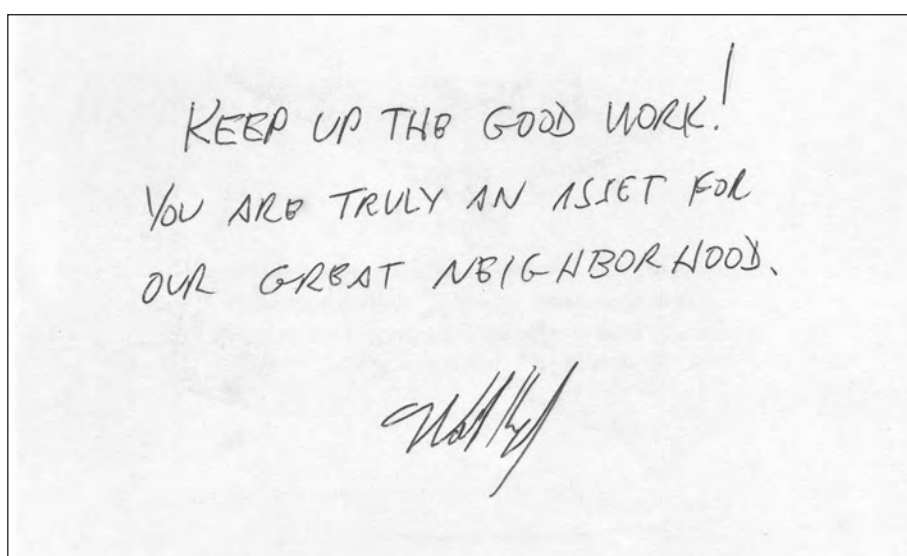 KEEP UP THE GOOD WORK!
YOU ARE TRULY AN ASSET FOR
OUR GREAT NEIGHBORHOOD.